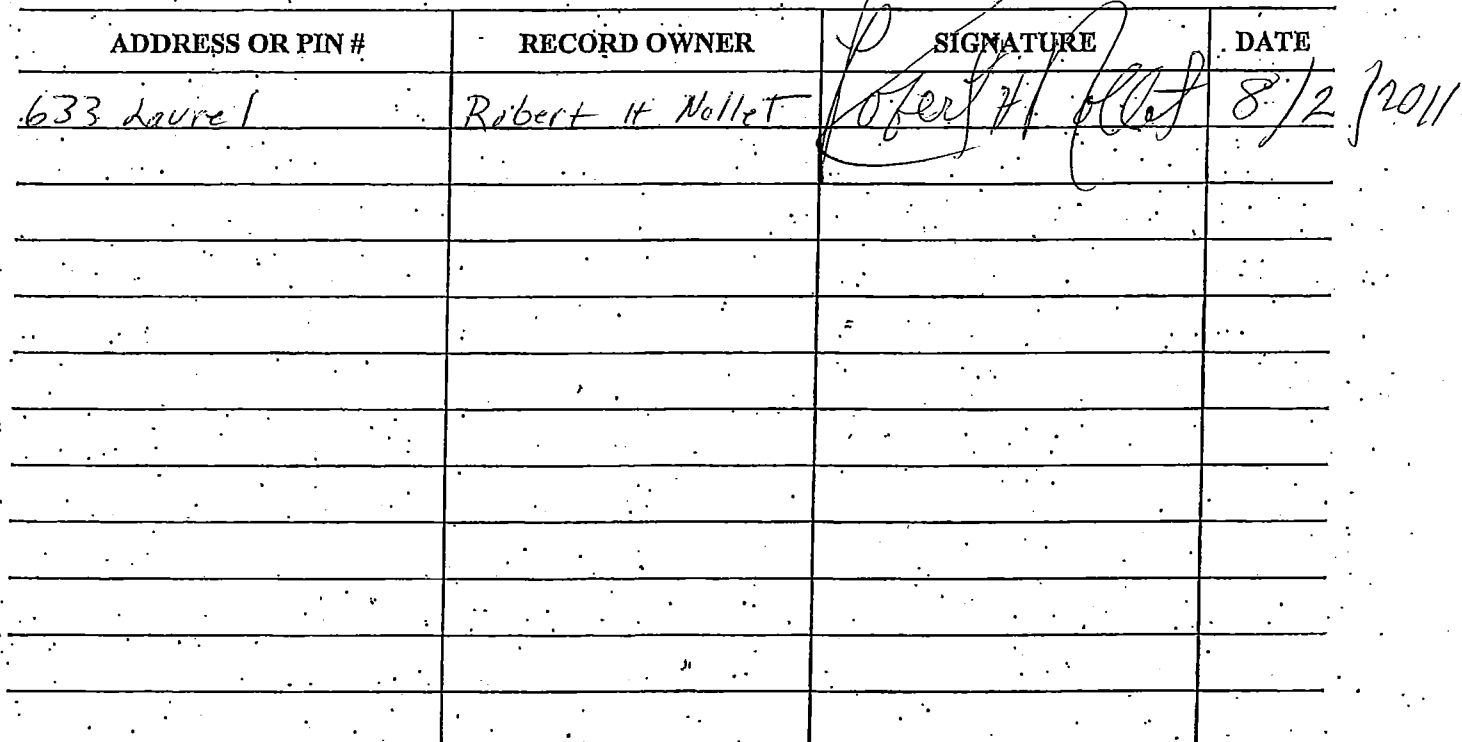 ADDRESS OR PIN # RECORD OWNER SIGNATURE DATE
633 Laurel Robert H Nollet Robert H Nollet 8/2/2011